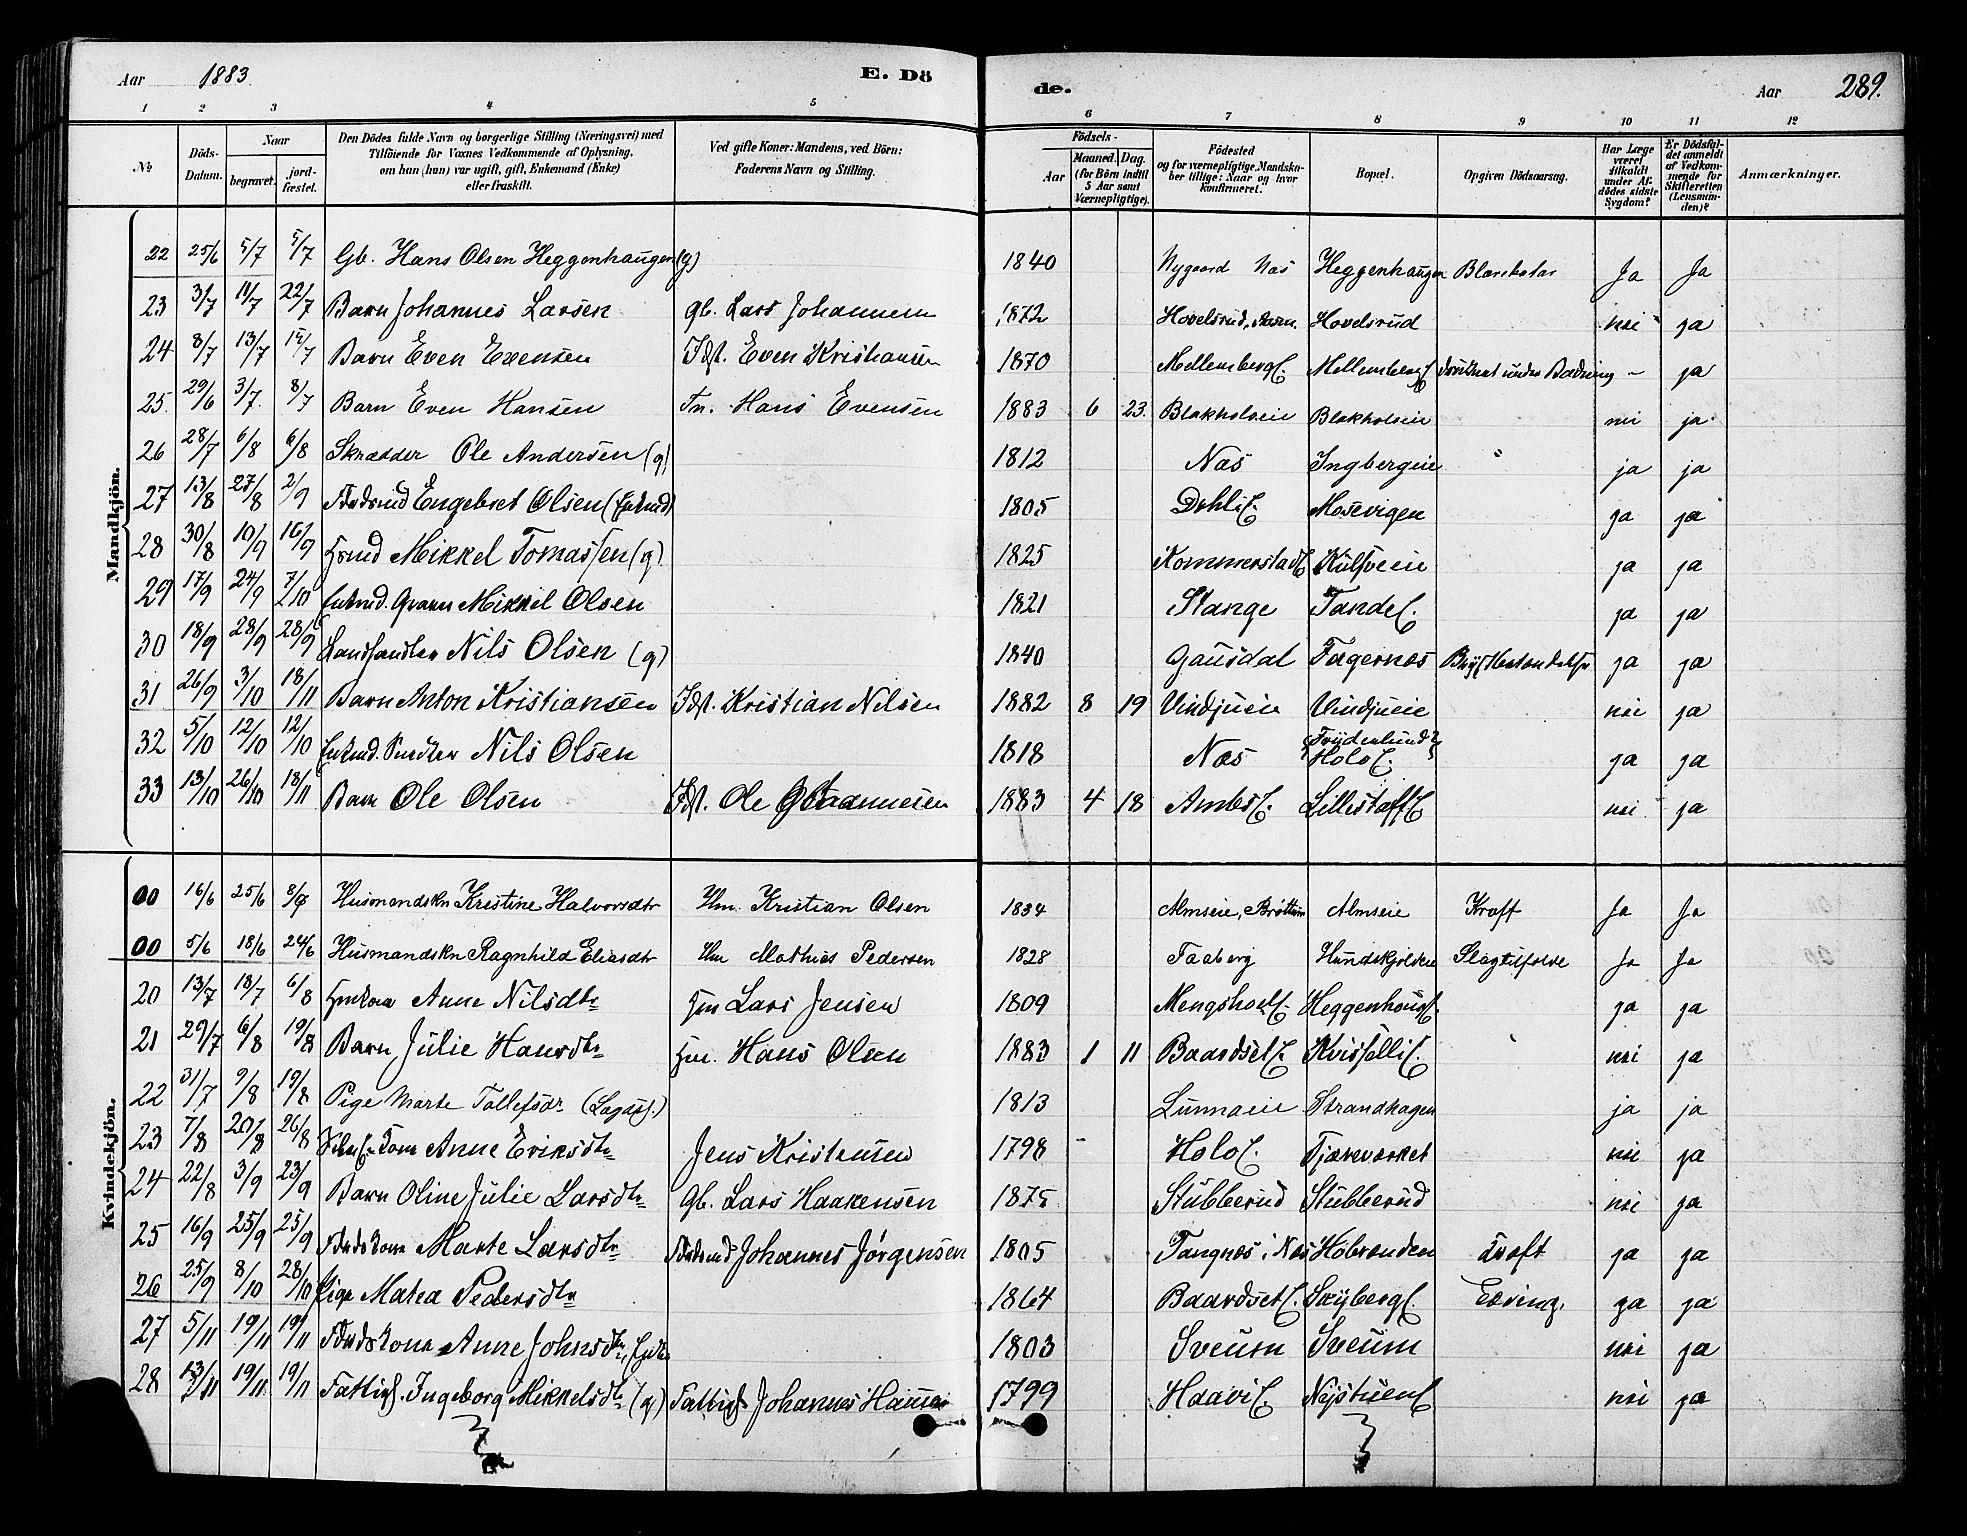 Aar 1883. E. Dö de. Aar 289.
1 2 3 4 5 6 7 8 9 10 11 12
No
Döds-Datum.
Naar
begravet.
jord-fæstet.
Den Dödes fulde Navn og borgerlige Stilling (Næringsvei) med
Tilföiende for Voxnes Vedkommende af Oplysning,
om han (hun) var ugift, gift, Enkemand (Enke)
eller fraskilt.
Ved gifte Koner: Mandens, ved Börn:
Faderens Navn og Stilling.
Födsels-
Aar
Maaned. Dag.
(for Börn indtil
5 Aar samt
Værnepligtige).
Födested
og for værnepligtige Mandska-
ber tillige: Naar og hvor
konfirmeret.
Bopæl.
Opgiven Dödsaarsag.
Har Læge
været
tilkaldt
under Af-
dödes sidste
Sygdom?
Er Dödsfal-
det anmeldt
af Vedkom-
mende for
Skifteretten
(Lensman-
den)?
Anmærkninger.
Mandkjön.
22 25/6 5/7 5/7 Gb. Hans Olsen Heggenhaugen (g) 1840 Nygaard Næs Heggenhaugen Blærekatar Ja Ja
23 3/7 11/7 22/7 Barn Johannes Larsen gb. Lars Johannesen 1872 Hovelsrud, Hovelsrud nei ja
24 8/7 13/7 15/7 Barn Even Evensen Idst. Even Kristiansen 1870 Mellemberg Mellemberg druknet under Badning - ja
25. 29/6 3/7 8/7 Barn Even Hansen Tn. Hans Evensen 1883 6 23. Blakholseie Blakholseie nei ja
26 28/7 6/8 6/8 Skrædder Ole Andersen (g) 1812 Næs Ingbergeie ja ja
27 13/8 27/8 2/9 Engebret Olsen (Enkmd) 1805 Dehli Mosevigen ja ja
28 30/8 10/9 16/9 Mikkel Tomassen (g) 1825 Kommerstad ja ja
29 17/9 24/9 7/10 Enkmd. Mikkel Olsen 1821 Stange Tande ja ja
30 18/9 28/9 28/9 Landhandler Nils Olsen (g) 1840 Gausdal Fagernæs ja ja
31 26/9 3/10 18/11 Barn Anton Kristiansen Idst. Kristian Nilsen 1882 8 19 Vindjueie Vindjueie nei ja
32 5/10 12/10 12/10 Enkmd. Nils Olsen 1818 Næs Frydenlund Holo ja ja
33 13/10 26/10 18/11 Barn Ole Olsen Idst. Ole Johannesen 1883 4 18 Ambs Lillestoft nei ja
Kvindekjön.
00 16/6 25/6 Husmandskn Kristine Halvorsdtr Hm. Kristian Olsen 1834 Almseie, Brøttum Almseie Kræft Ja Ja
00 5/6 18/6 24/6 Husmandskn Ragnhild Eliasdtr Hm Mathias Pedersen 1828 Faaberg Hundskjoldeie Slagtilfælde Ja Ja
20 13/7 18/7 6/8 Hmkona Anne Nilsdtr Hm Lars Jensen 1809 Mengshoel Heggenhoug ja ja
21 29/7 6/8 19/8 Barn Julie Hansdtr Hm. Hans Olsen 1883 1 11 Baardset Kvisfelli nei ja
22 31/7 9/8 19/8 Pige Marte Tollefsdr (Lagdsl.) 1813 Lunnaeie Strandhagen ja ja
23 7/8 20/8 26/8 Kone Anne Eriksdtr Jens Kristensen 1798 Holo Tjæreværket nei ja
24 22/8 3/9 23/9 Barn Oline Julie Larsdtr Gb. Lars Haakensen 1875 Stubberud Stubberud nei ja
25 16/9 25/9 25/9 Fdrdskone Marte Larsdtr Fdrdsmd Johannes Jørgensen 1805 Tangnæs i Næs Høbranden Kræft ja ja
26 25/9 8/10 28/10 Pige Matea Pedersdtr 1864 Baardset Skyberg Tæring. ja ja
27 5/11 19/11 19/11 Fdrdskone Anne Johnsdtr, Enke 1803 Sveum Sveum nei ja
28 13/11 19/11 19/11 Fattigl. Ingeborg Mikkelsdtr (g) Fattigl. Johannes Hansen 1799 Haavi Nystuen nei ja